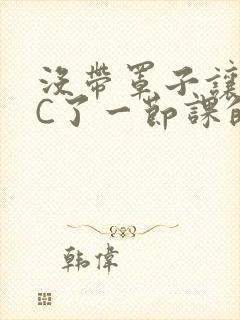 沒帶罩子讓
C了一節課
韓偉